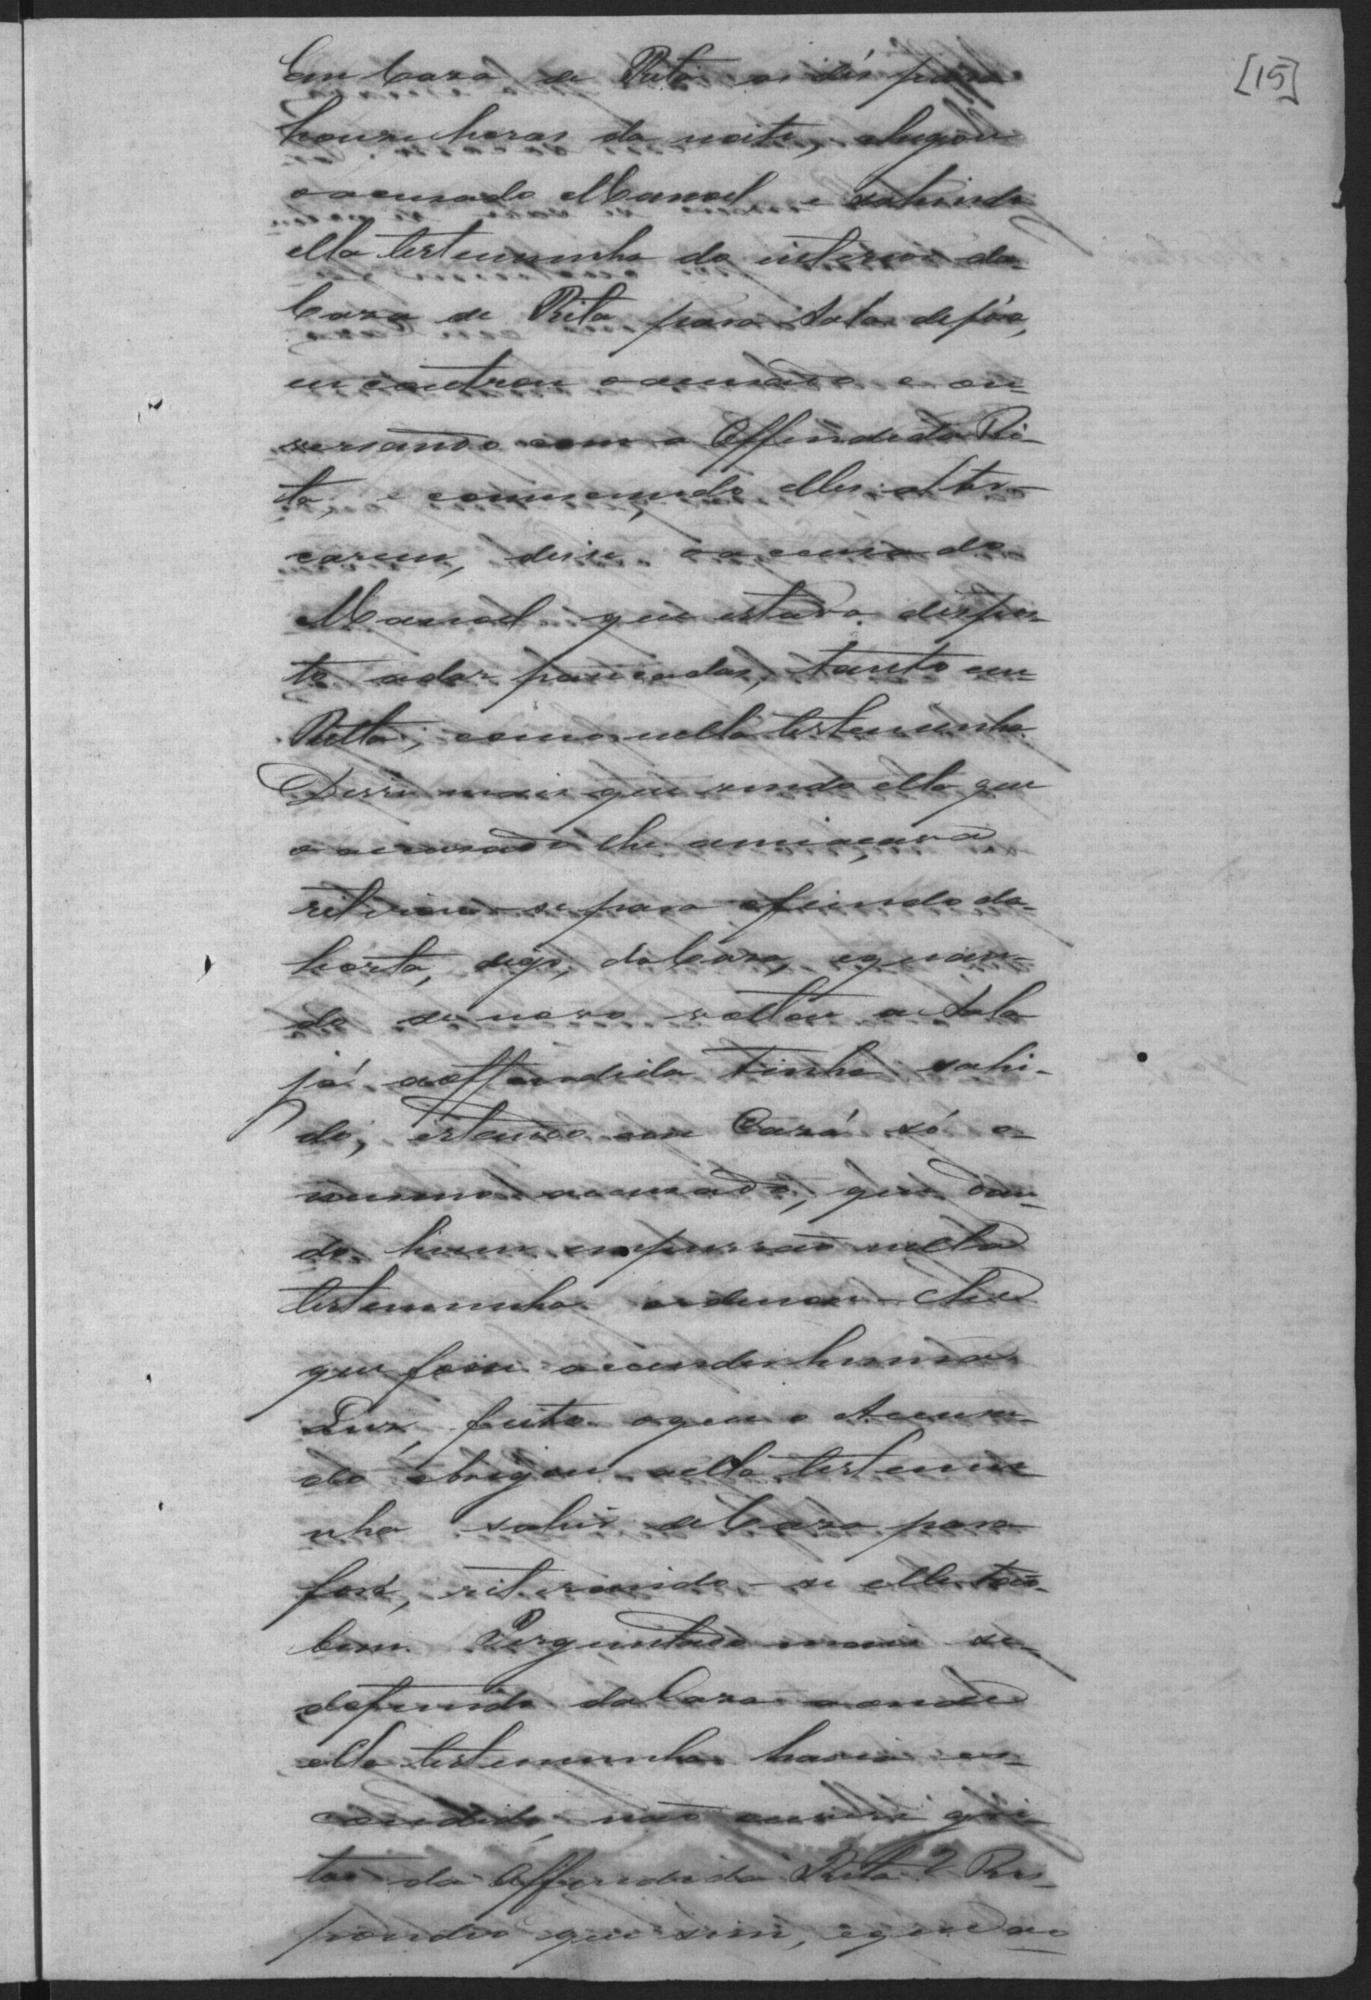 [15]
Em Caza de Rita as dés para
honze horas da noite, chegou
o acusado Manoel e sahindo
ella testemunha do interior da
Caza de Rita para Sala de fóra,
encontrou o acusado e con-
versando com a Offendida Ri-
ta, e começando elles alter-
carem, disse o acusado
Manoel que estava dispos-
to a dar pancadas, tanto em
Ritta, como nella testemunha.
Disse mais que vendo ella que
o acusado lhe ameaçava
retirou-se para o fundo da
horta, digo, da Caza, e quan-
do de novo voltou a Sala
já a offendida tinha sahi-
do, estando em Caza só o
mesmo acusado, que dan-
do hum empurrão nella
testemunha ordenou-lhe
que fosse accender huma
Luz, feito o que o Acusa-
do obrigou a ella testemu-
nha sahir de Caza para
fora, retirando-se elle tam-
bem. Perguntado mais se
do fundo da Caza aonde
ella testemunha havia es-
condido, não ouvira gri-
tos da Offendida Rita? Res-
pondeo que sim, e que ao